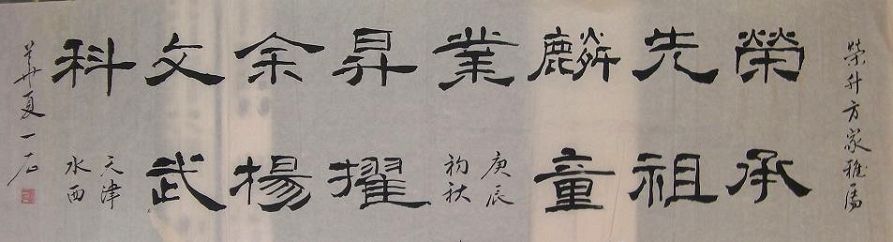 榮升方家雅属
榮承
先祖
麟童
業
庚辰
初秋
昇擢
余揚
文武
科
天津
水西
華夏一石